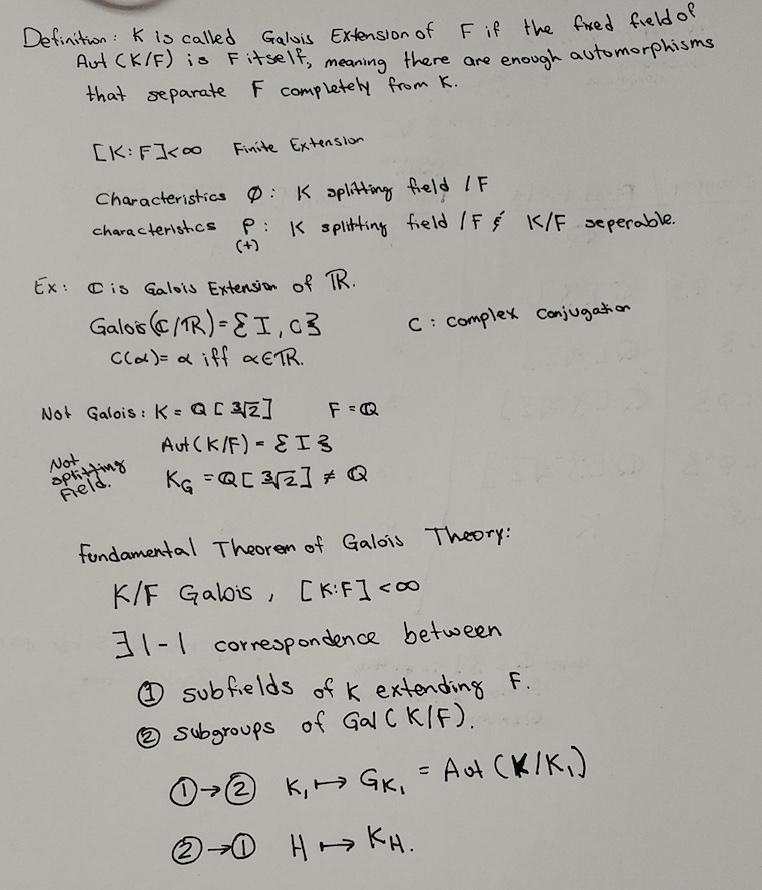 Definition: K is called Galois Extension of F if the fixed field of
Aut (K/F) is F itself, meaning there are enough automorphisms
that separate F completely from K.
[K:F]<∞ Finite Extension
Characteristics ∅: K splitting field /F
characteristics p: K splitting field /F & K/F seperable.
(+)
Ex: ℂ is Galois Extension of ℝ.
Galois(ℂ/ℝ)={I, C} C: complex conjugation
C(α)= α iff α∈ℝ.
Not Galois: K = ℚ[∛2] F = ℚ
Aut(K/F) = {I}
Not splitting Field.
K_G = ℚ[∛2] ≠ ℚ
Fundamental Theorem of Galois Theory:
K/F Galois, [K:F] <∞
∃ 1-1 correspondence between
① subfields of K extending F.
② subgroups of Gal(K/F).
①→② K₁ ↦ G_K₁ = Aut (K/K₁)
②→① H ↦ K_H.